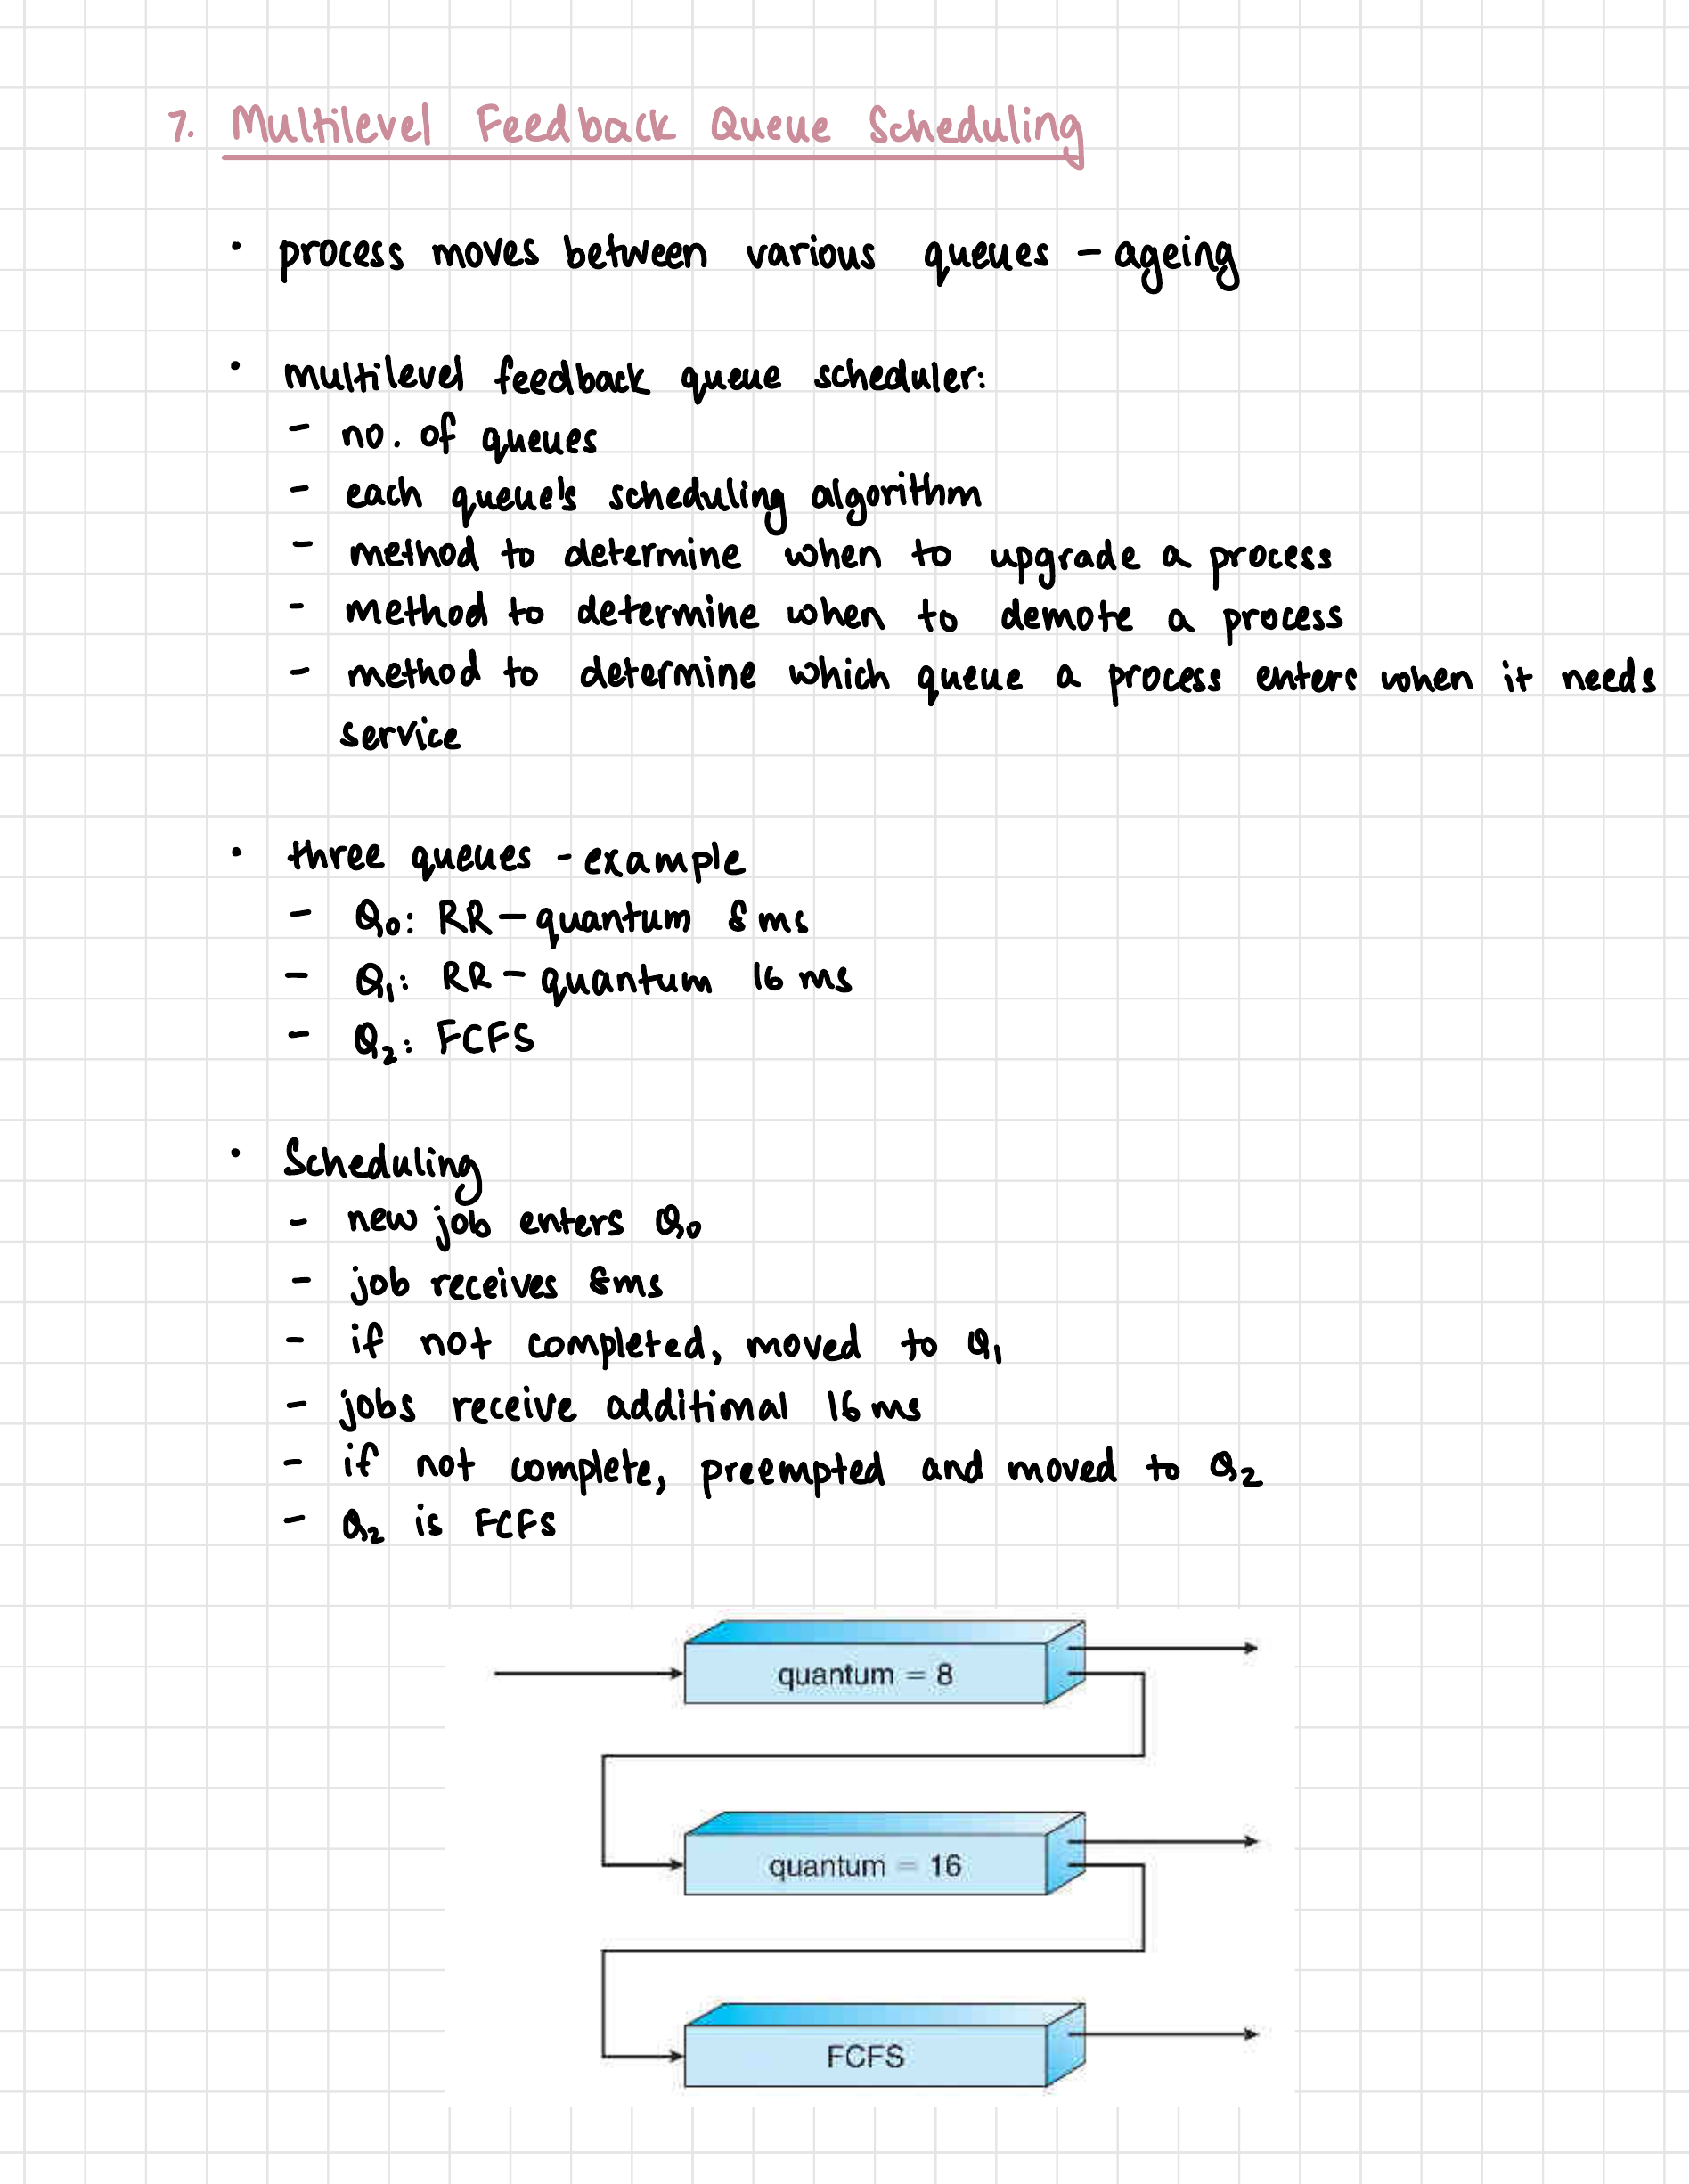 7. Multilevel Feedback Queue Scheduling
• process moves between various queues - ageing
• multilevel feedback queue scheduler:
- no. of queues
- each queue's scheduling algorithm
- method to determine when to upgrade a process
- method to determine when to demote a process
- method to determine which queue a process enters when it needs
service
• three queues - example
- Q₀: RR - quantum 8 ms
- Q₁: RR - quantum 16 ms
- Q₂: FCFS
• Scheduling
- new job enters Q₀
- job receives 8ms
- if not completed, moved to Q₁
- jobs receive additional 16 ms
- if not complete, preempted and moved to Q₂
- Q₂ is FCFS
quantum = 8
quantum = 16
FCFS